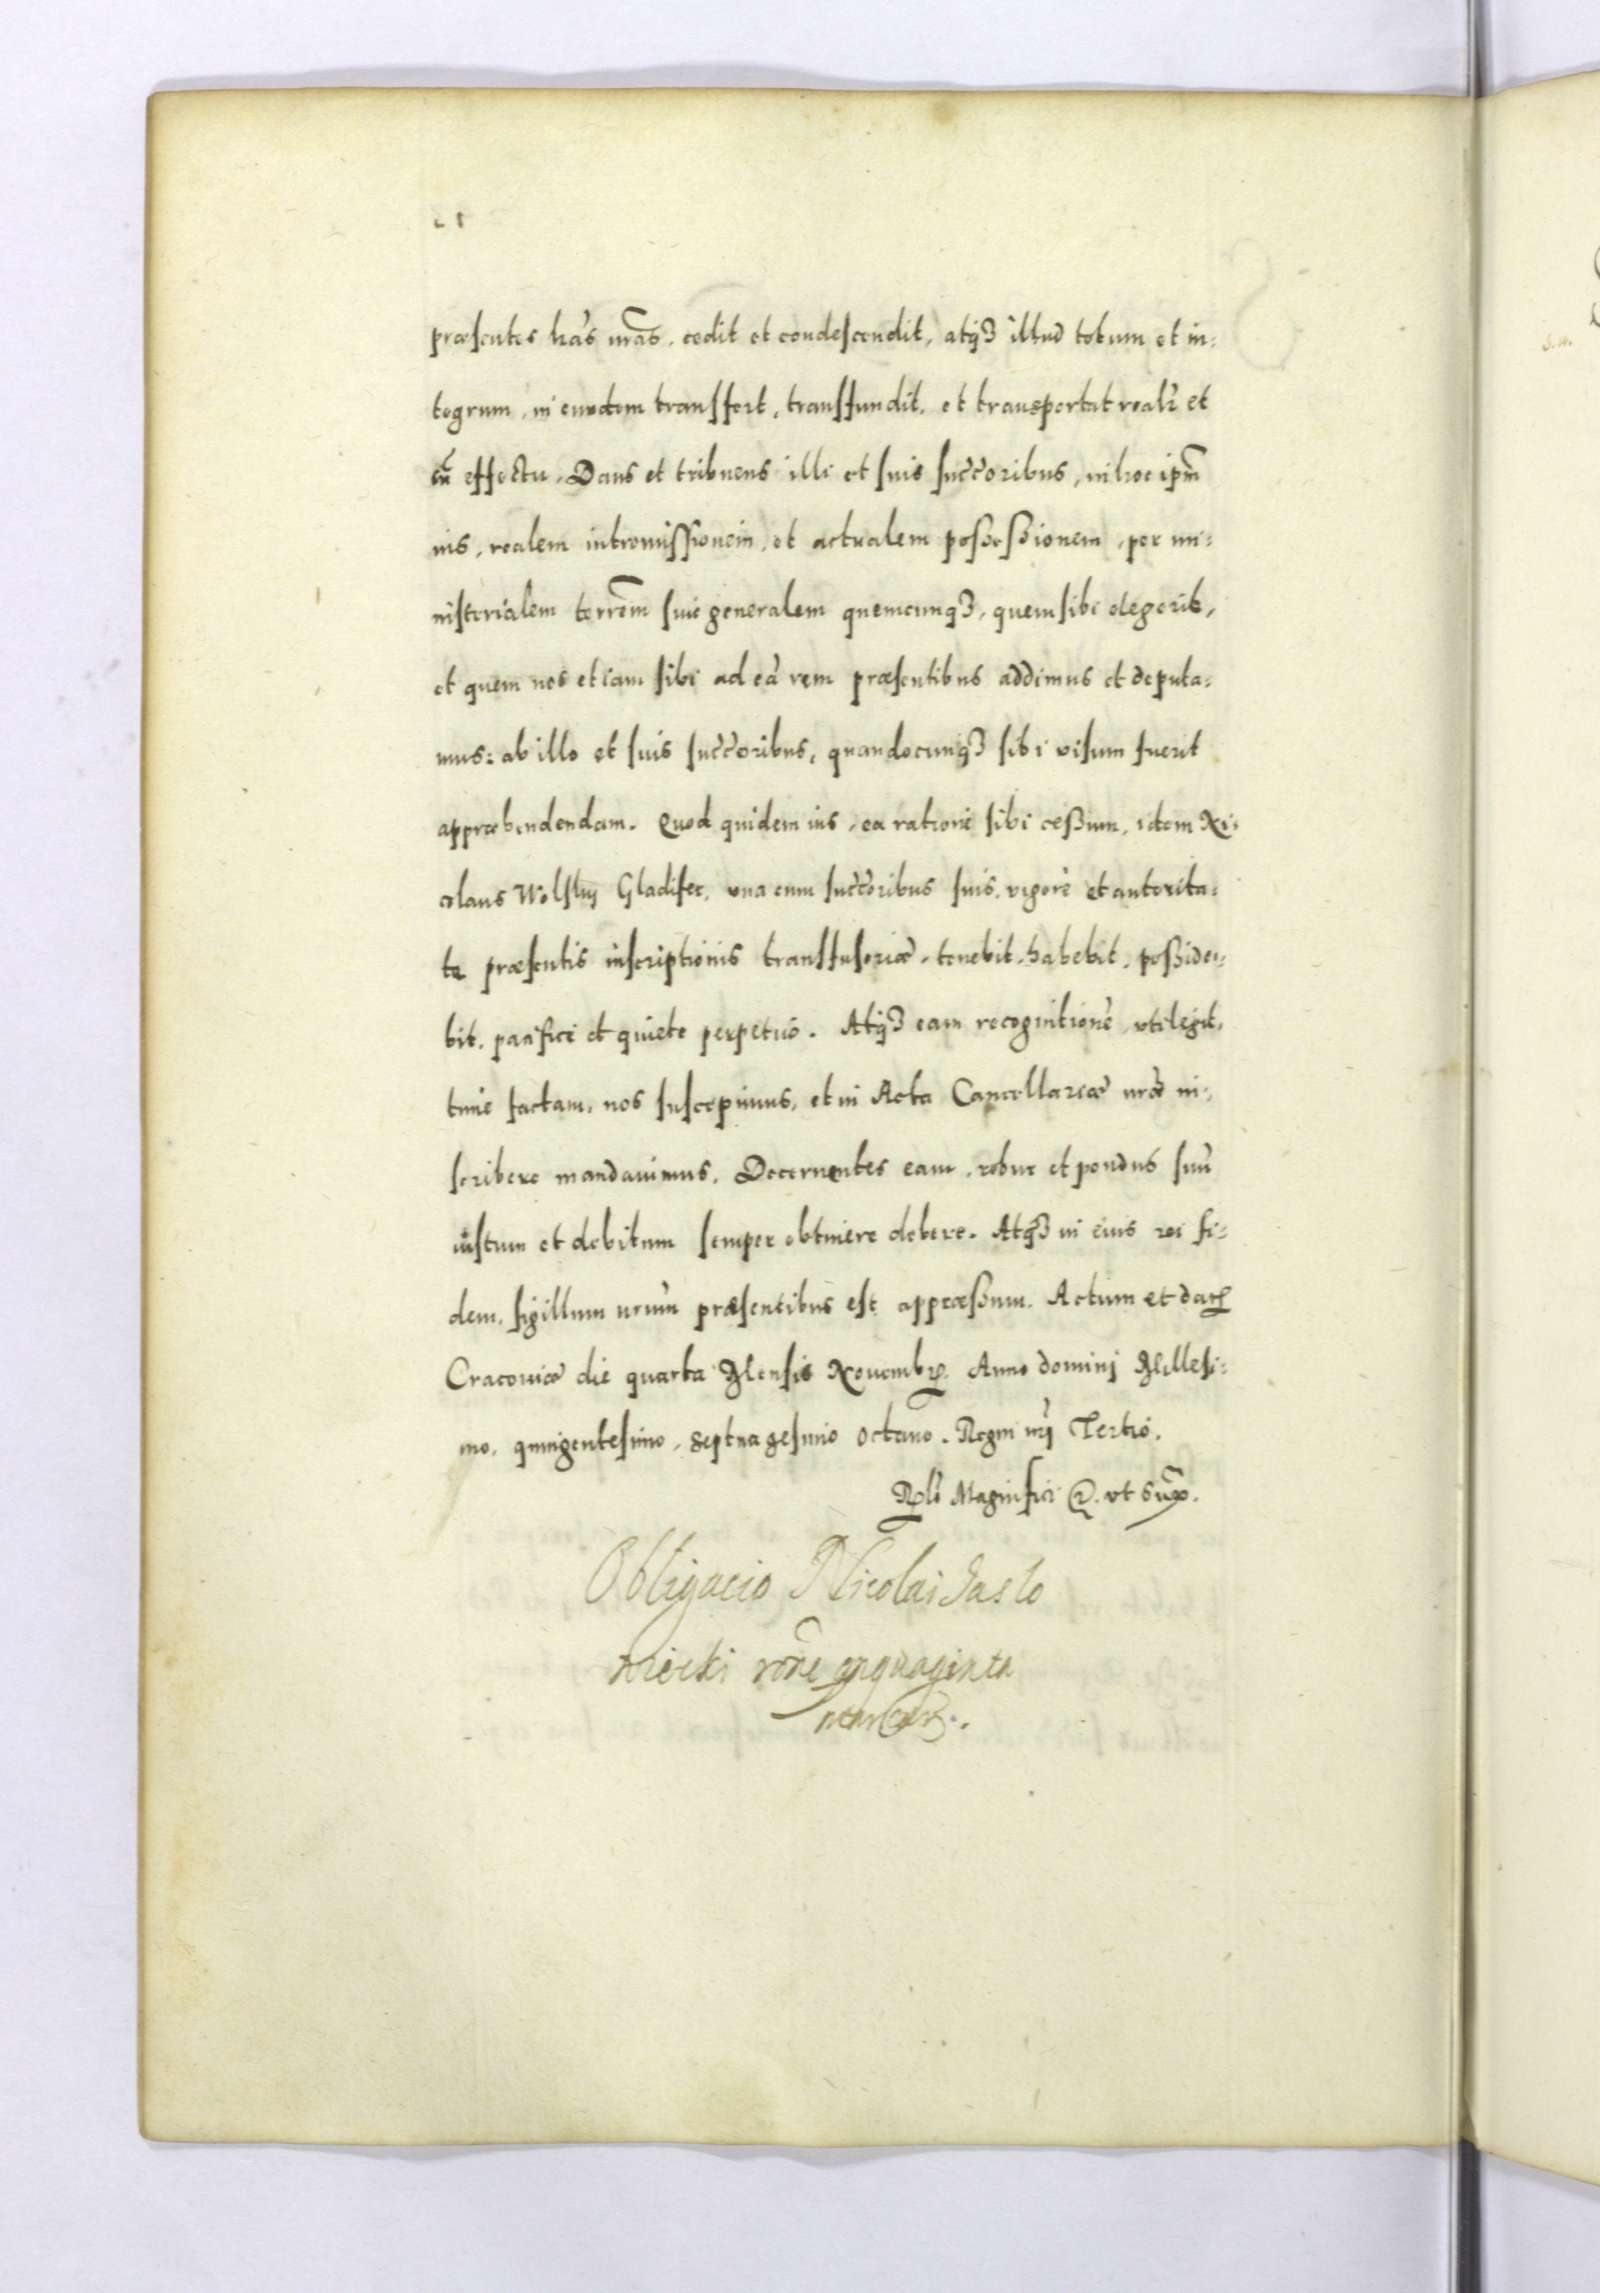 præsentes hãs nr̃as, cedit et condescendit, atq3 illud totum et in-
tegrum, in eundem transfert, transfundit, et transportat realr̃ et
cũ effectu. Dans et tribuens illi et suis succ̃oribus, in hoc ipm̃
ius, realem intromissionem, et actualem possessionem, per mi-
nisterialem terrẽm siue generalem quemcunq3, quem sibi elegerit,
et quem nos etiam sibi ad eã rem præsentibus addimus et deputa-
mus: ab illo et suis succ̃oribus, quandocunq3 sibi visum fuerit
appræhendendam. Quod quidem ius, ea ratione sibi cessum, idem Ni-
colaus Wolski Gladifer, una cum succ̃oribus suis, vigore et autorita-
te præsentis inscriptionis transfusoriæ, tenebit, habebit, posside-
bit, pacifice et quiete perpetuo. Atq3 eam recognitionẽ, uti legit-
time factam, nos suscepimus, et in Acta Cancellariæ nr̃æ in-
scribere mandauimus. Decernentes eam, robur et pondus suũ
iustum et debitum semper obtinere debere. Atq3 in eius rei fi-
dem, sigillum nrũm præsentibus est appræssum. Actum et dat̃
Cracouiæ die quarta Mensis Nouembr̃. Anno domini Millesi-
mo, quingentesimo, septuagesimo octauo. Regni nr̃i Tertio.
Rlõ Magnifici &. ut supr̃.
Obligacio Nicolai Jaslo
wiecki rõne qnquaginta
marcar̃.